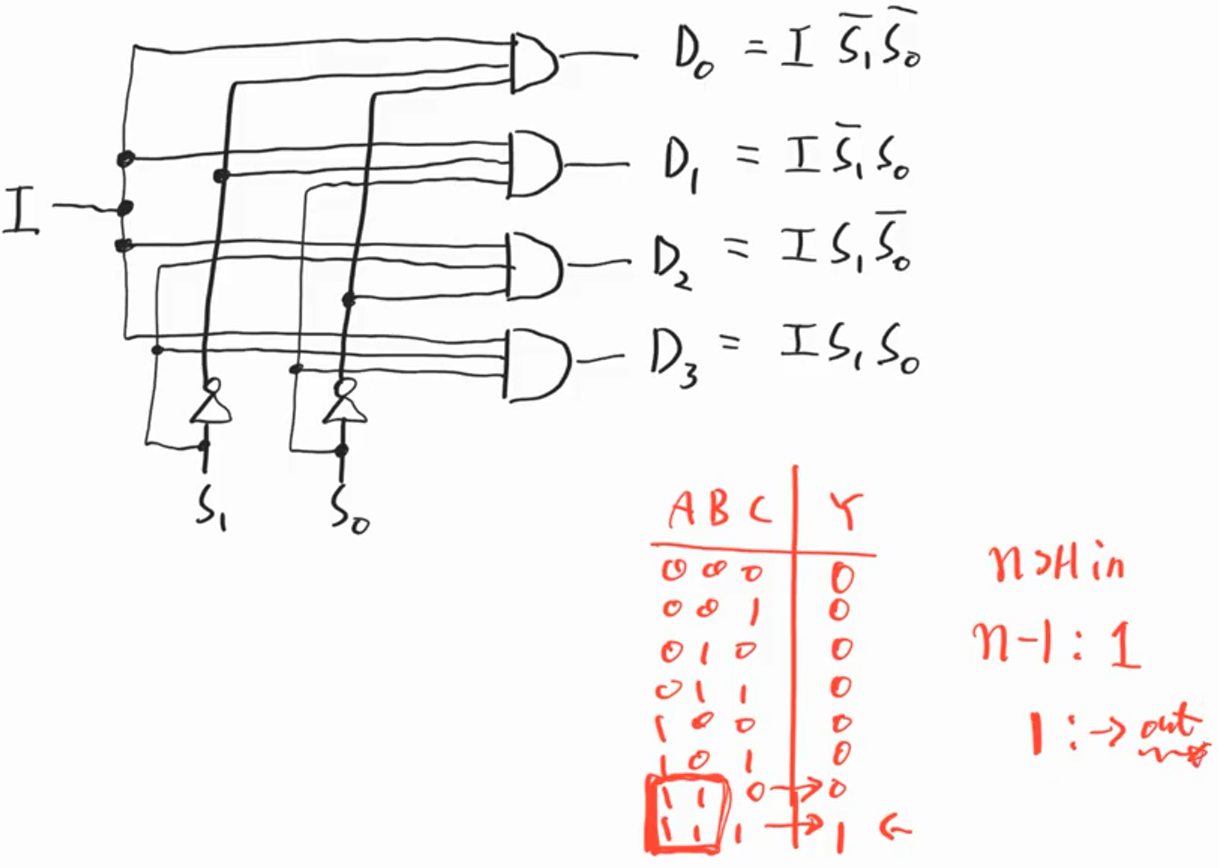 D₀ = I S̅₁ S̅₀
D₁ = I S̅₁ S₀
I
D₂ = I S₁ S̅₀
D₃ = I S₁ S₀
S₁ S₀
A B C Y
0 0 0 0
0 0 1 0
0 1 0 0
0 1 1 0
1 0 0 0
1 0 1 0
1 1 0 → 0
1 1 1 → 1 ←
in
n-1 : 1
1 : → out